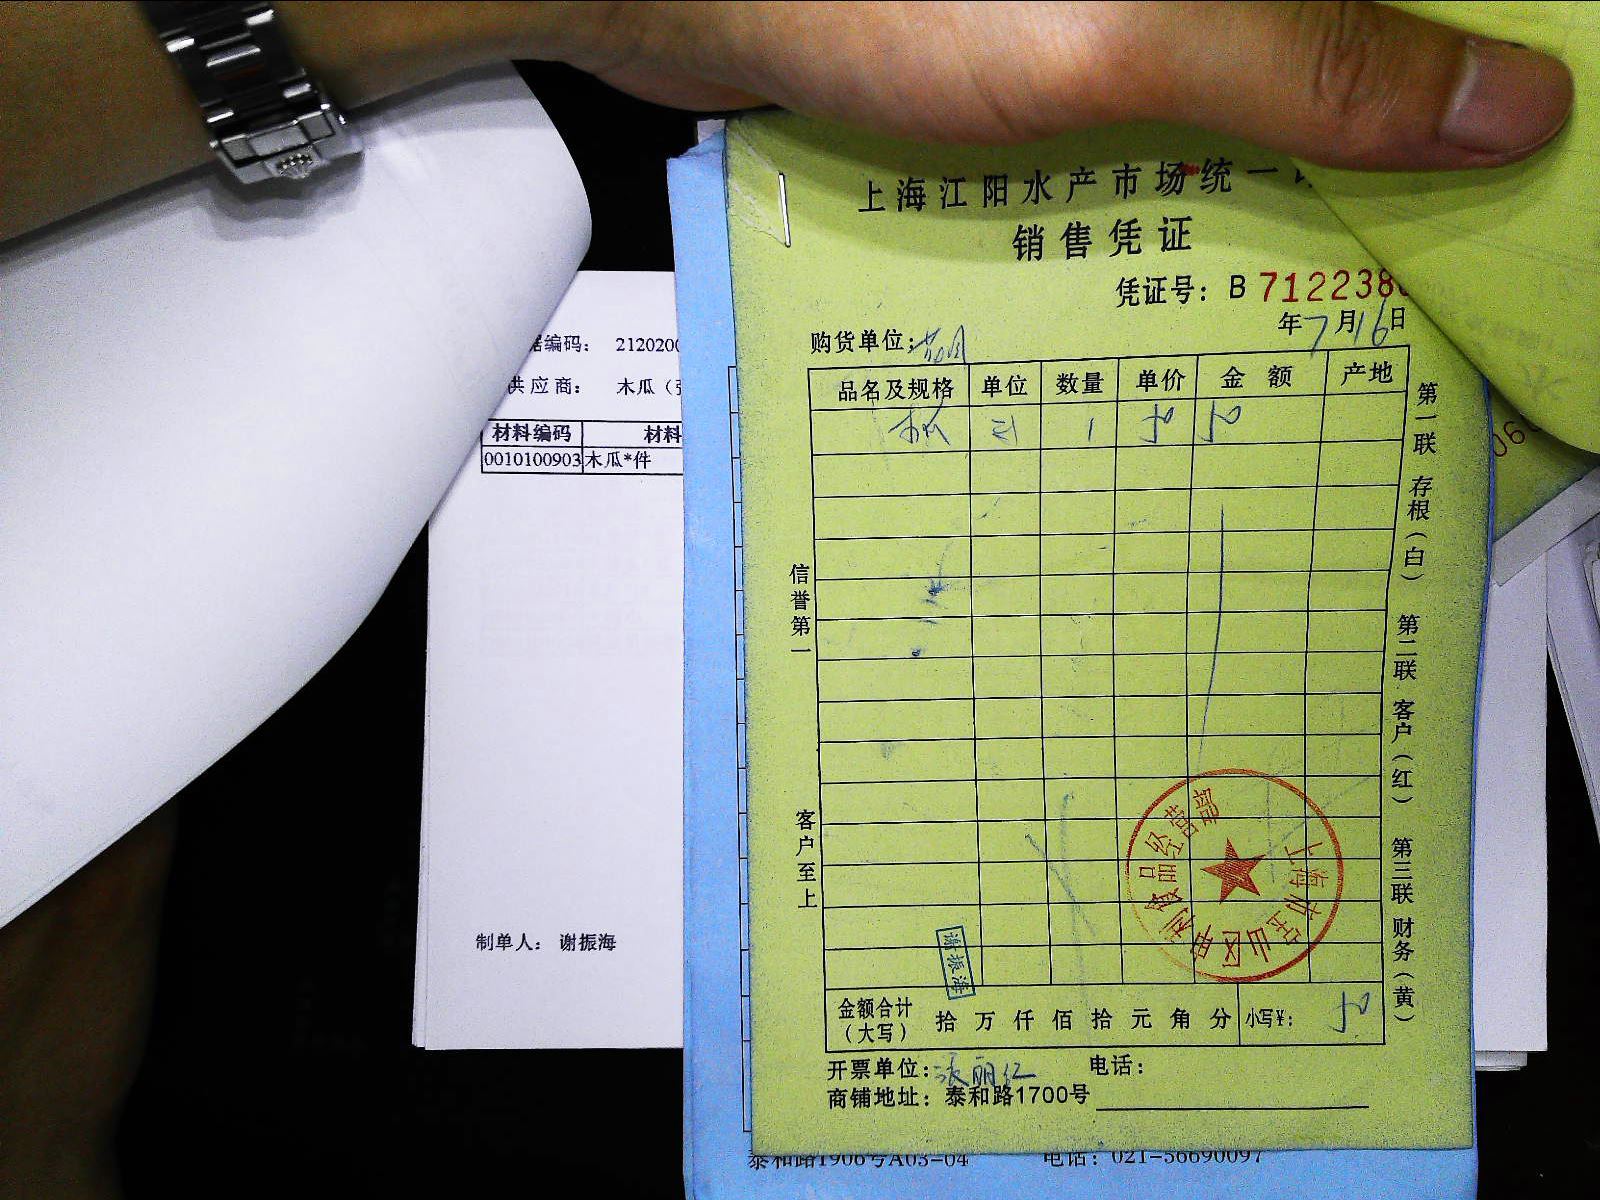 上海江阳水产市场统一
销售凭证
凭证号: B 712238
年7月16日
购货单位:
品名及规格 单位 数量 单价 金额 产地
木瓜 1 50 50
信誉第一
客户至上
第一联 存根(白) 第二联 客户(红) 第三联 财务(黄)
上海市宝山区申利食品经营部
谢振海
金额合计(大写) 拾万仟佰拾元角分 小写¥: 50
开票单位: 张丽红 电话:
商铺地址: 泰和路1700号
泰和路1906号A03-04 电话: 021-56690097
据编码: 2120200
供应商: 木瓜(张
材料编码 材料
0010100903 木瓜*件
制单人: 谢振海
060